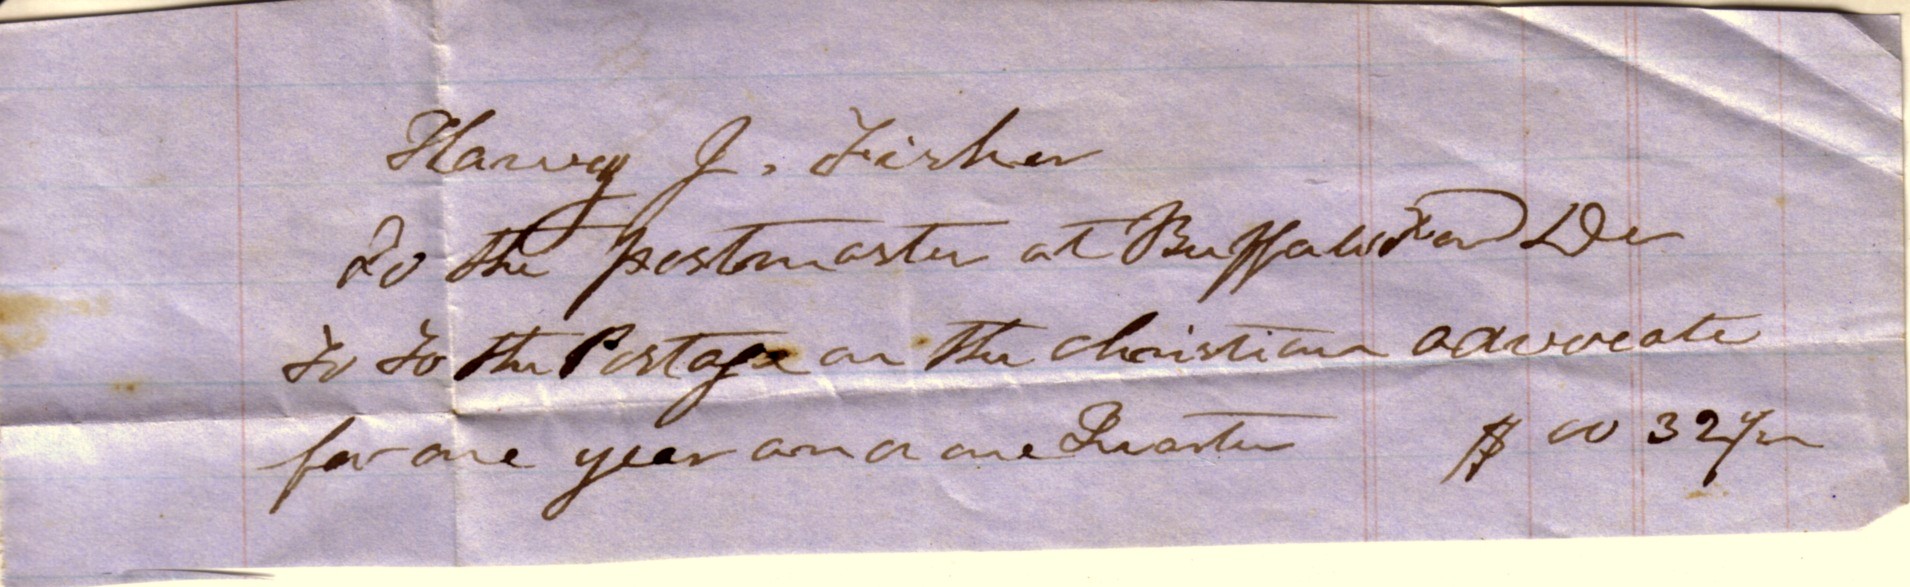 Harvey J. Fisher
To the postmaster at Buffalo Dr
To To the Postage on the christian advocate
for one year and one Quarter $ 00 32 1/2